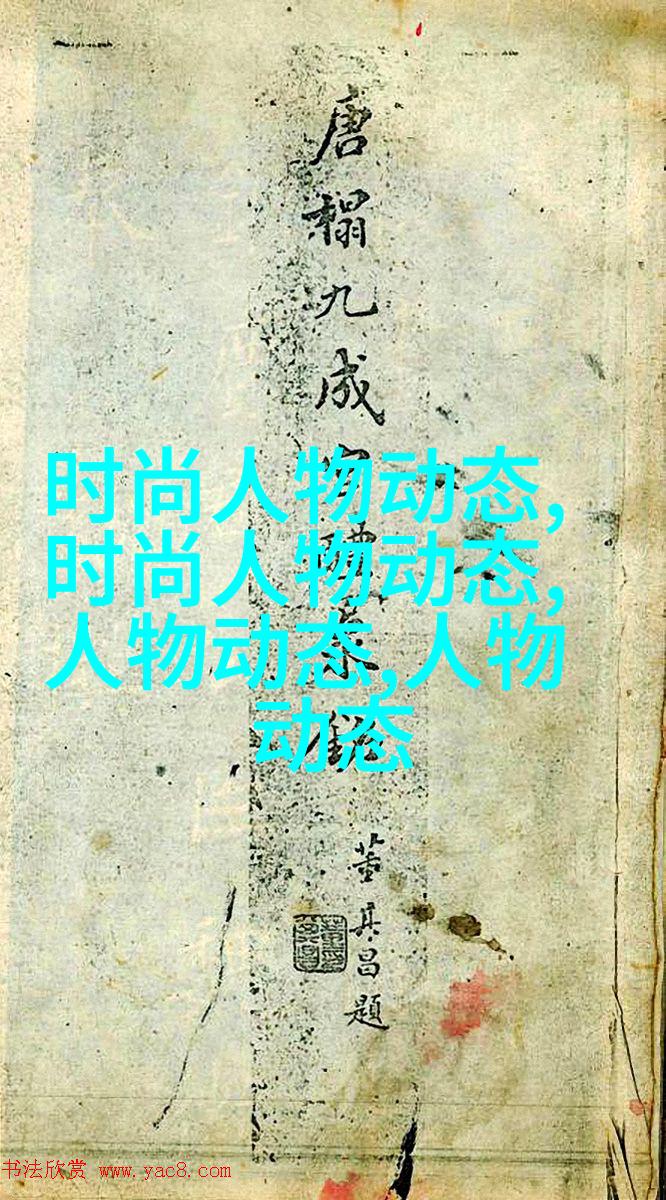 唐榻九成宮醴泉銘
董其昌題
时尚人物动态,
时尚人物动态,
人物动态,人物
动态
书法欣赏 www.yac8.com